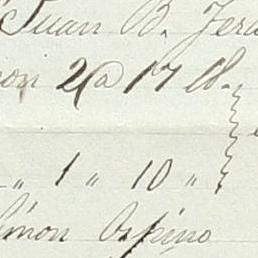 Juan B. Jer
on 2 @ 17 lb.
" 1 " 10 "
imon Ospino